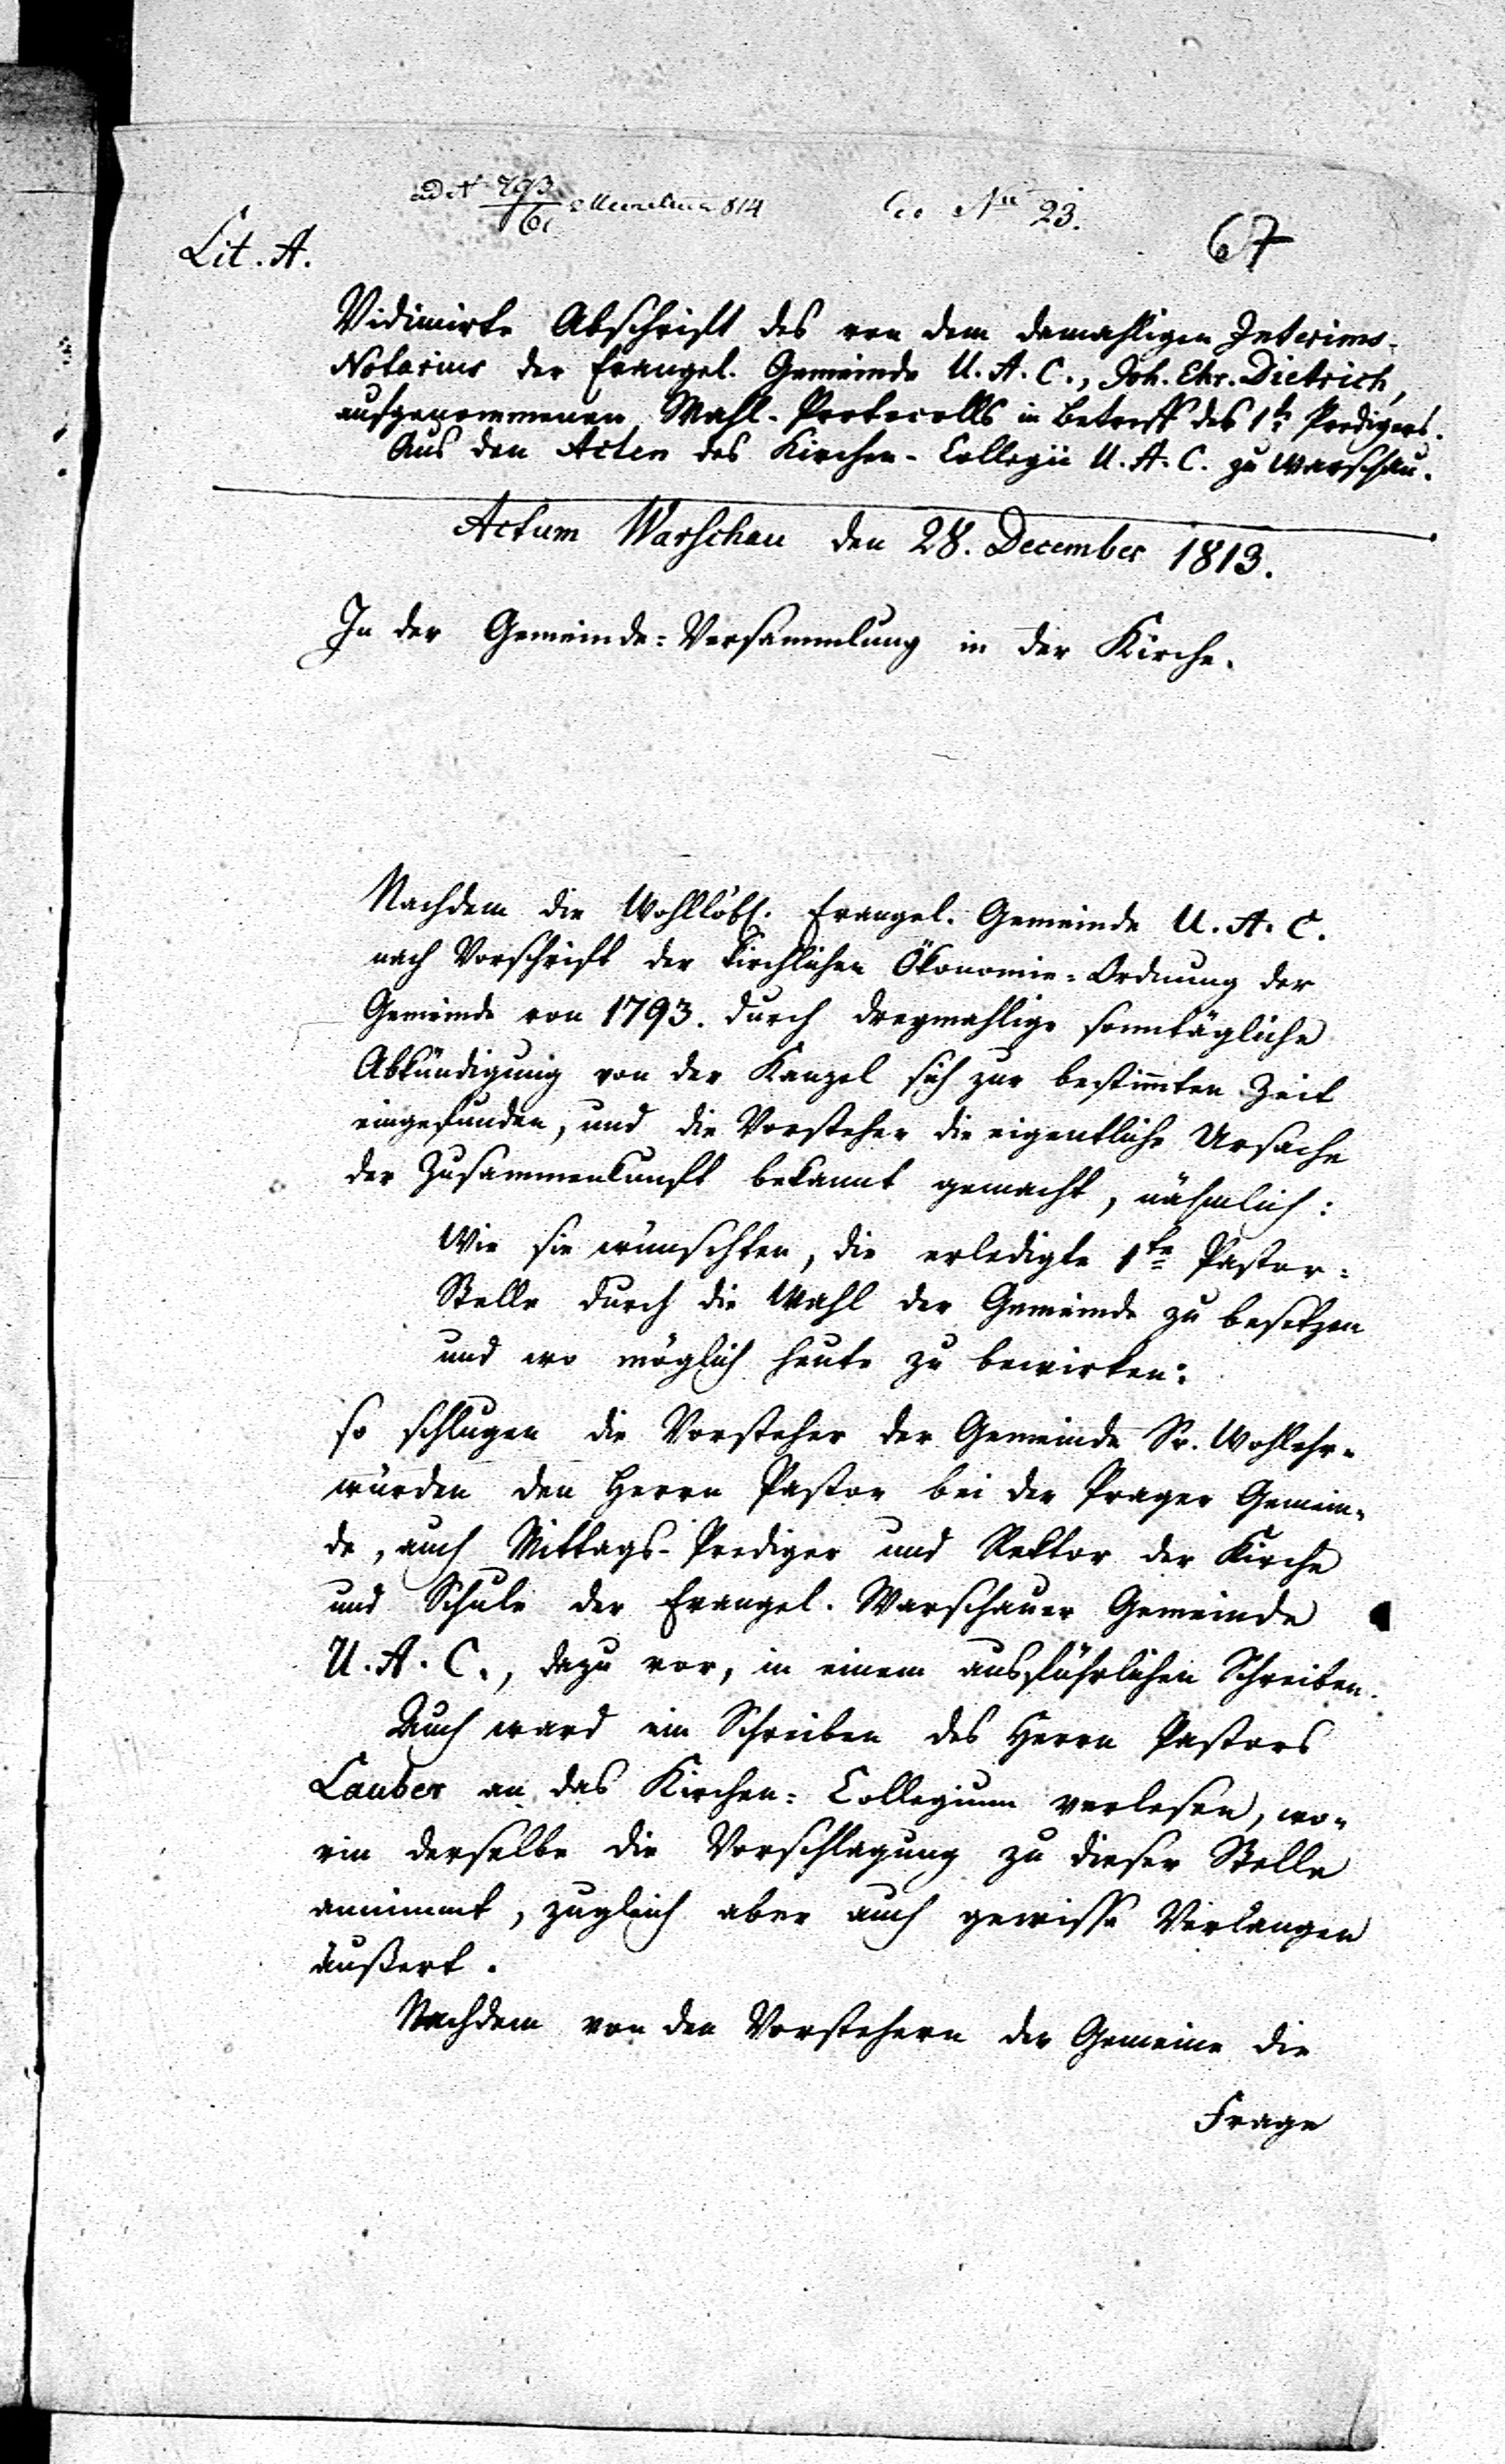 No 23.
67
Lit. A.
Vidimirte Abschrift des von dem damahligen Interims-
Notarius der Evangel. Gemeinde U. A. C., Joh. Chr. Dietrich,
aufgenommenen Wahl-Protocolls in Betreff des 1t Predigers.
Aus den Acten des Kirchen-Collegii U. A. C. zu Warschau.
Actum Warschau den 28. December 1813.
In der Gemeinde-Versammlung in der Kirche.
Nachdem die Wohllöbl. Evangel. Gemeinde U. A. C.
nach Vorschrift der kirchlichen Ökonomie-Ordnung der
Gemeinde von 1793. durch dreymahlige sonntägliche
Abkündigung von der Kanzel sich zur bestimten Zeit
eingefunden, und die Vorsteher die eigentliche Ursache
der Zusammenkunft bekannt gemacht, nähmlich:
Wie sie wünschten, die erledigte 1te Pastor-
Stelle durch die Wahl der Gemeinde zu besetzen
und wo möglich heute zu bewirken:
so schlugen die Vorsteher der Gemeinde Sr. Wohlehr-
würden den Herrn Pastor bei der Prager Gemein-
de, auch Mittags-Prediger und Rektor der Kirche
und Schule der Evangel. Warschauer Gemeinde
U. A. C., dazu vor, in einem ausführlichen Schreiben.
Auch ward ein Schreiben des Herrn Pastors
Lauber an das Kirchen-Collegium verlesen, wo-
rin derselbe die Vorschlagung zu dieser Stelle
annimmt, zugleich aber auch gewisse Verlangen
äußert.
Nachdem von den Vorstehern der Gemeine die
Frage